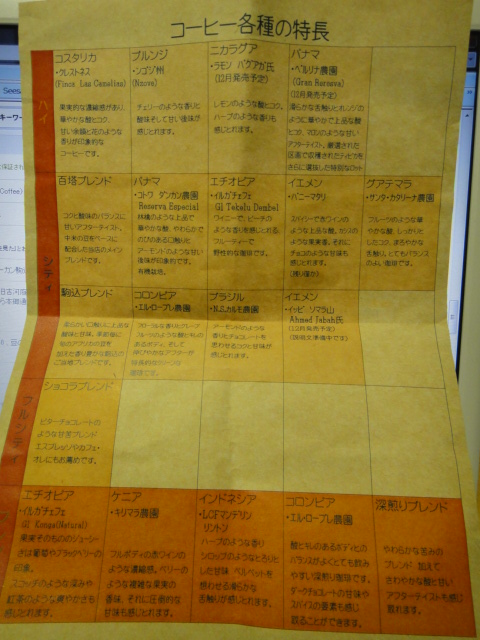 コーヒー各種の特長
ハイ
コスタリカ
・クレストネス
果実的な濃縮感があり、
華やかな酸とコク、
甘い余韻と花のような
香りが印象的な
コーヒーです。
ブルンジ
・ンゴジ州
チェリーのような香りと
酸味そして甘い後味が
感じとれます。
ニカラグア
(12月発売予定)
レモンのような酸とコク、
ハーブのような香りも
感じとれます。
パナマ
・ベルリナ農園
(12月発売予定)
滑らかな舌触りとオレンジの
ように華やかで上品な酸
とコク、マロンのような甘い
アフターテイスト。厳選された
区画で収穫されたティピカを
さらに選抜した特別なロット
シティ
百塔ブレンド
コクと酸味のバランスに
甘いアフターテイスト。
中米の豆をベースに
配合した当店のメイン
ブレンドです。
パナマ
・コトワ ダンカン農園
Reserva Especial
林檎のような上品で
華やかな酸、やわらかで
のびのある口触りと
アーモンドのような甘い
後味が印象的です。
有機栽培。
エチオピア
・イルガチェフェ
ワイニーで、ピーチの
ような香りを感じとれる
フルーティーで
野性的な珈琲です。
イエメン
・バニーマタリ
スパイシーで赤ワインの
ような上品な酸、カシスの
ような果実香、それに
チョコのような甘味も
感じとれます。
(残り僅か)
グアテマラ
・サンタ・カタリーナ農園
フルーツのような華
やかな酸、しっかりと
したコク、まろやかな
舌触り。とてもバランス
のよい珈琲です。
駒込ブレンド
柔らかい口触りに上品な
酸味と甘味。季節毎に
旬のアフリカの豆を
加えた香り豊かな駒込の
ご当地ブレンドです。
コロンビア
・エル・ローブレ農園
ブラジル
・N.S.カルモ農園
アーモンドのような
香りとチョコレートを
思わせるコクと甘味が
感じとれます。
イエメン
・イッビ・ソマラ山
Ahmed Jabah氏
(12月発売予定)
(説明文準備中です)
フルシティ
ショコラブレンド
ビターチョコレートの
ような甘苦ブレンド
エスプレッソやカフェ・
オレにもお薦めです。
エチオピア
・イルガチェフェ
G1 Konga(Natural)
果実そのもののジューシー
さは葡萄やブラックベリーの
印象。
スコッチのような深みや
紅茶のような爽やかさも
感じとれます。
ケニア
・キリマラ農園
フルボディの赤ワインの
ような濃縮感。ベリーの
ような複雑な果実の
香味、それに圧倒的な
甘味も感じとれます。
インドネシア
・LCFマンデリン
リントン
ハーブのような香り
シロップのようなとろりと
した甘味、ベルベットを
想わせる滑らかな
舌触りが感じとれます。
コロンビア
・エル・ローブレ農園
酸とキレのあるボディとの
バランスがよくとても飲み
やすい深煎り珈琲です。
ダークチョコレートの甘味や
スパイスの要素も感じ
取ることができます。
深煎りブレンド
やわらかな苦みの
ブレンド 加えて
さわやかな酸と甘い
アフターテイストも感じ
取れます。